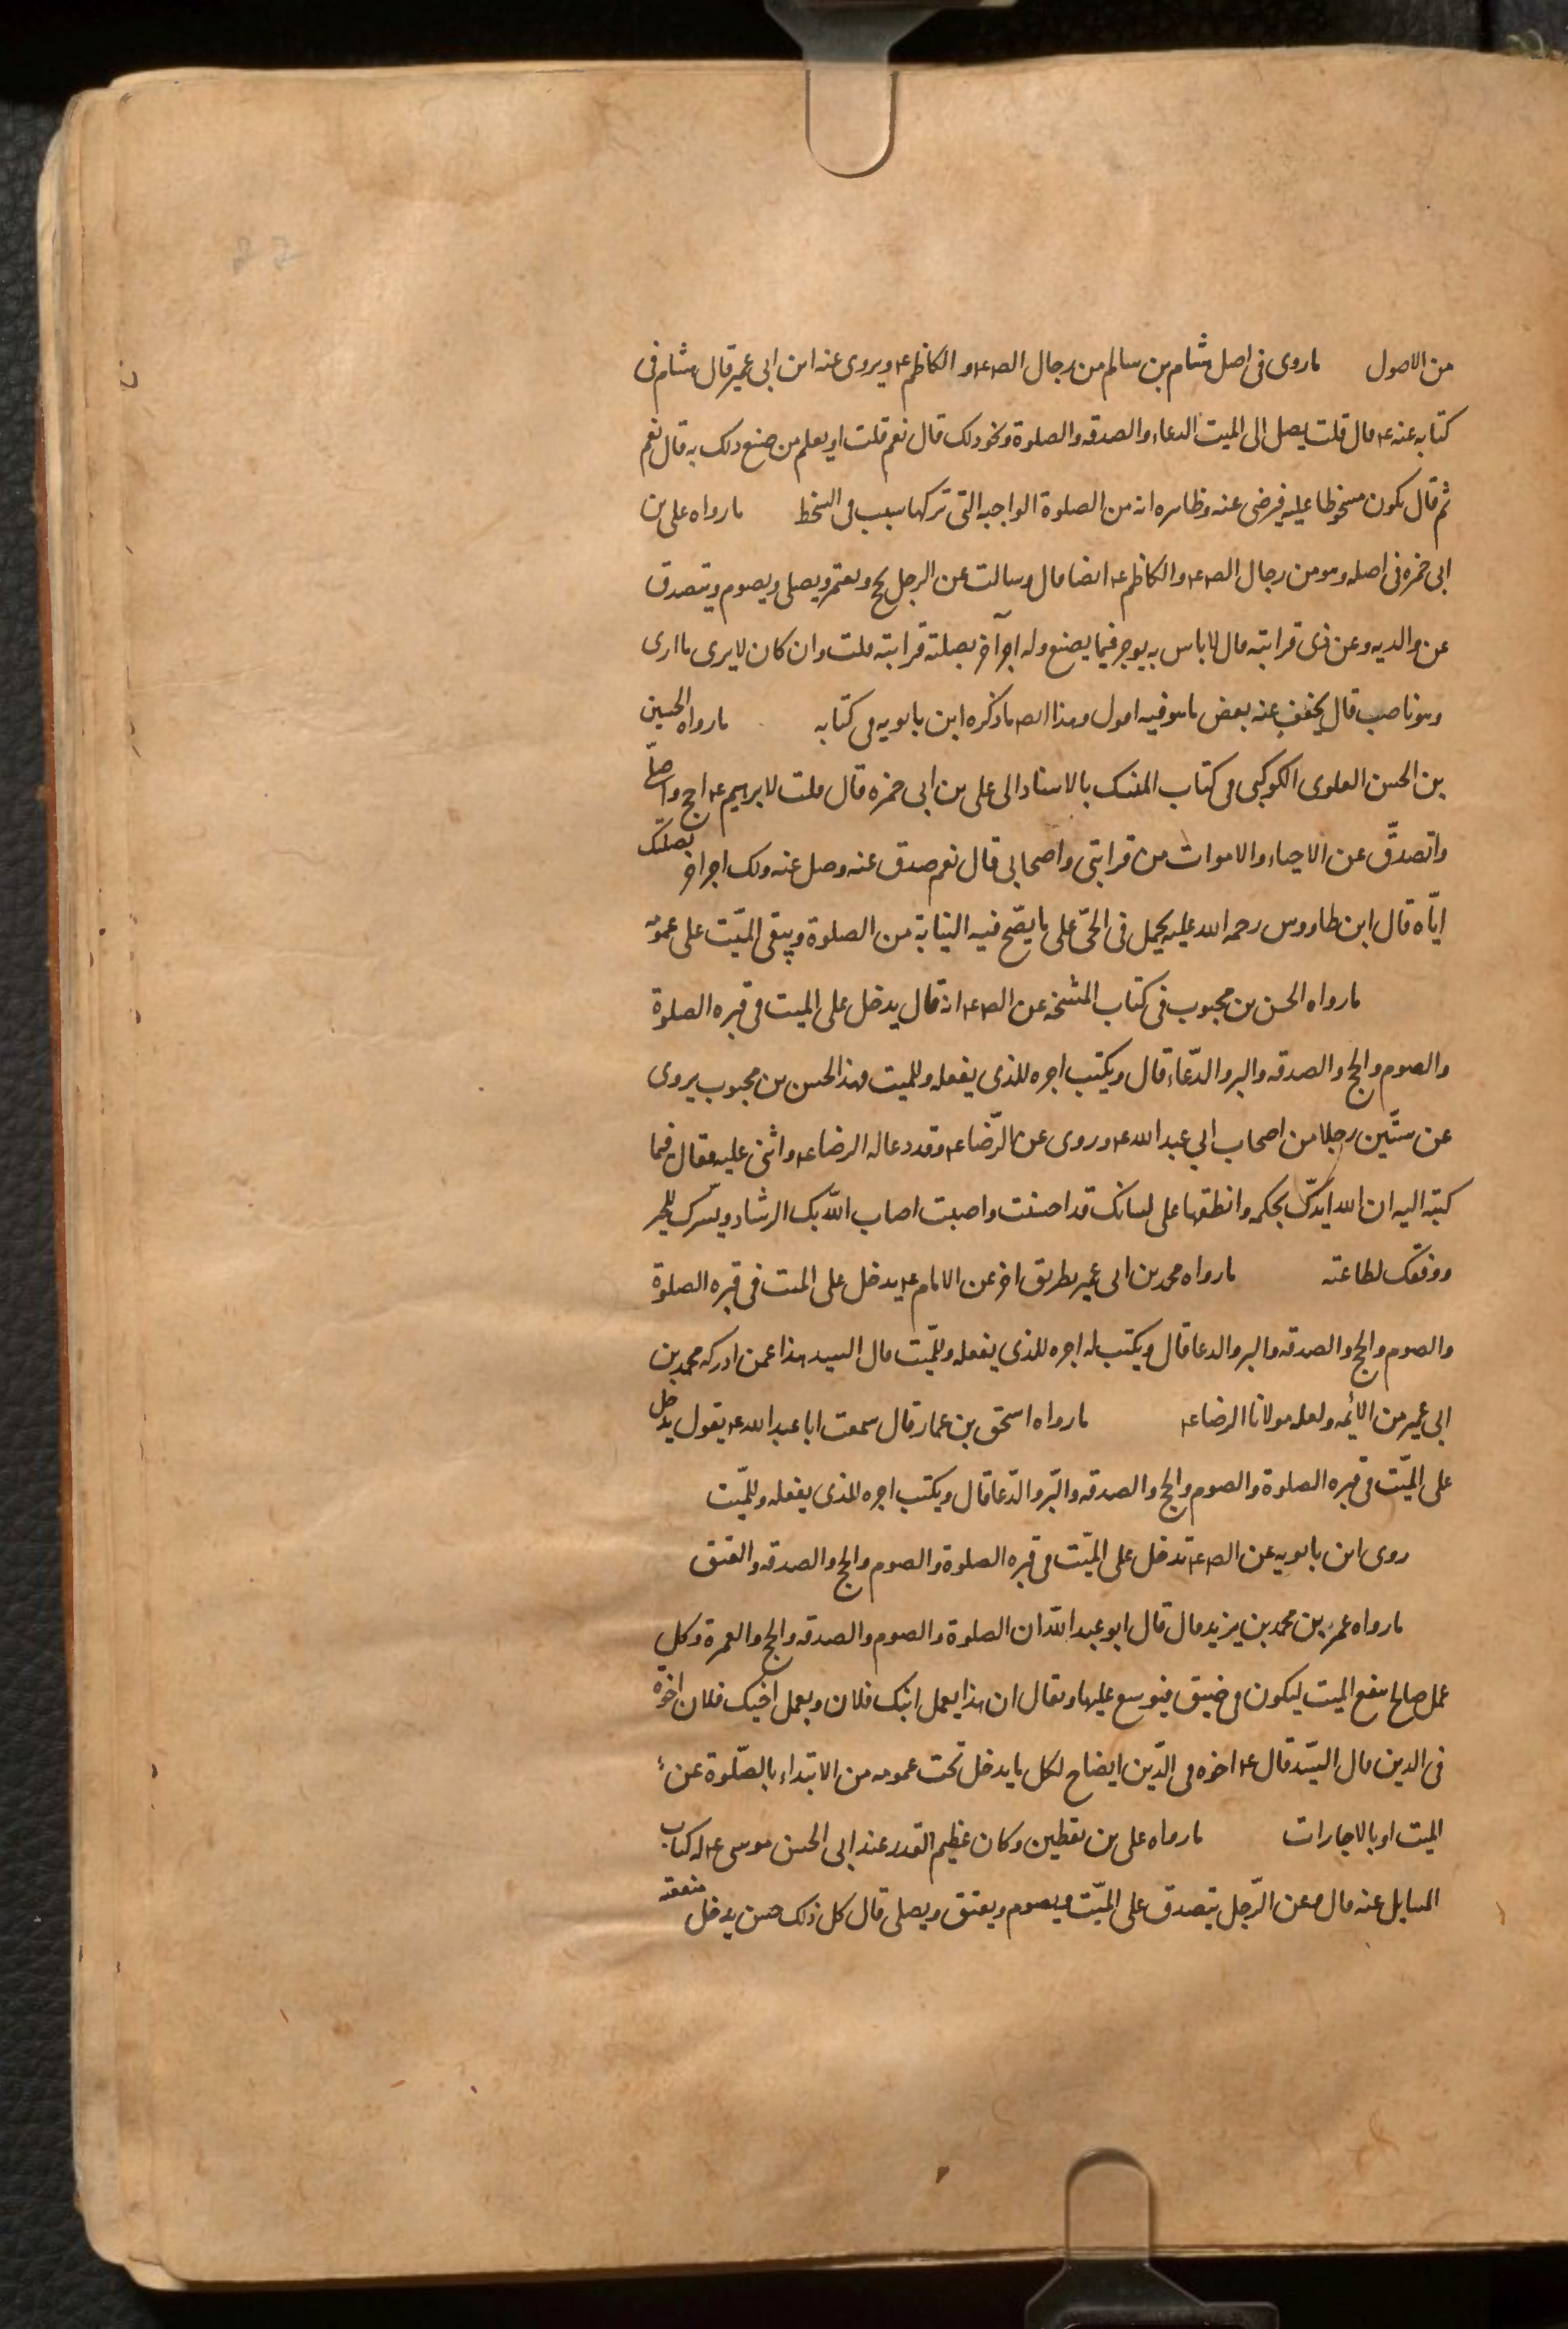 من الاصول ما روى فى اصل هشام بن سالم من رجال الص ع و الكاظم ع ويروى عنه ابن ابى عمير قال هشام فى
كتابه عنه ع قال قلت يصل الى الميت الدعاء والصدقه والصلوة ونحو ذلك قال نعم قلت او يعلم من صنع ذلك به قال نعم
ثم قال يكون مسخوطا عليه فيرضى عنه وظاهره انه من الصلوة الواجبه التى تركها سبب فى السخط ما رواه على بن
ابى حمزه فى اصله وهو من رجال الص ع والكاظم ع ايضا قال وسالت عن الرجل يحج ويعتمر ويصلى ويصوم ويتصدق
عن والديه وعن ذى قرابته قال لا باس به يوجر فيما يصنع وله اجر آخر بصلته قرابته قلت وان كان لا يرى ما ارى
وهو ناصب قال يخفف عنه بعض ما هو فيه اقول وهذا ايضا ما ذكره ابن بابويه فى كتابه ما رواه الحسين
بن الحسن العلوى الكوكبى فى كتاب المنسك بالاسناد الى على بن ابى حمزه قال قلت لابرهيم ع احج واصلّى
واتصدقّ عن الاحياء والاموات من قرابتى واصحابى قال نعم صدق عنه وصل عنه ولك اجر اخر بصلتك
ايّاه قال ابن طاووس رحمه الله عليه يحمل فى الحىّ على ما يصّح فيه النيابة من الصلوة ويبقى الميّت على عمومه
ما رواه الحسن بن محبوب فى كتاب المشيخه عن الص ع انه قال يدخل على الميت فى قبره الصلوة
والصوم والحج والصدقه والبر والدّعاء قال ويكتب اجره للذى يفعله وللميت وهذا الحسن بن محبوب يروى
عن ستّين رجلا من اصحاب ابي عبد الله ع وروى عن الرّضا ع وقد دعا له الرضا ع واثنى عليه فقال فيما
كتبه اليه ان الله ايدكّ بحكمه وانطقها على لسانك قد احسنت واصبت اصاب اللّه بك الرشاد ويسّرك للخير
ووفقك لطاعته ما رواه محمد بن ابى عمير بطريق اخر عن الامام ع يدخل على الميت فى قبره الصلوة
والصوم والحج والصدقه والبر والدعا قال ويكتب له اجره للذى يفعله وللّميت قال السيد هذا عمن ادركه محمد بن
ابى عمير من الائمه ولعله مولانا الرضا ع ما رواه اسحق بن عمار قال سمعت ابا عبد الله ع يقول يدخل
على الميّت فى قبره الصلوة والصوم والحج والصدقه والبّر والدّعا قال ويكتب اجره للذى يفعله وللميّت
روى ابن بابويه عن الص ع يدخل على الميّت فى قبره الصلوة والصوم والحج والصدقه والعتق
ما رواه عمر بن محمد بن يزيد قال قال ابو عبد اللّه ان الصلوة والصوم والصدقه والحج والعمرة وكل
عمل صالح ينفع الميت ليكون فى ضيق فيوسع عليه او يقال ان هذا بعمل ابنك فلان وبعمل اخيك فلان اخوه
فى الدين قال السّيد قال ع اخوه فى الدّين ايضاح لكل ما يدخل تحت عمومه من الابتداء بالصّلوة عن
الميت او بالاجارات ما رواه على بن يقطين وكان عظيم القدر عند ابى الحسن موسى ع له كتاب
المسايل عنه قال وعن الرّجل يتصدق على الميّت ويصوم ويعتق ويصلى قال كل ذلك حسن يدخل منفعته